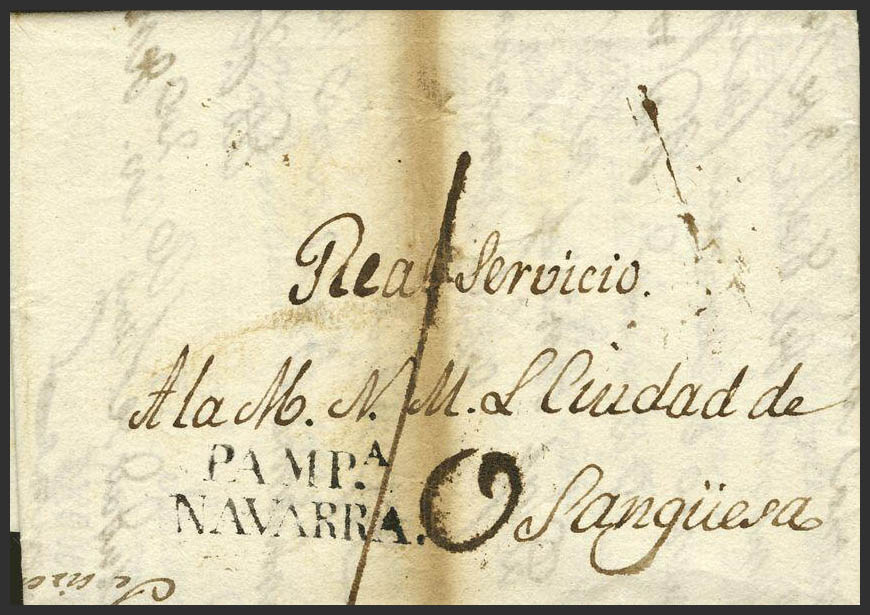 Real Servicio.
A la M. N. M. L Ciudad de
Sangüesa
PAMP.A
NAVARRA.